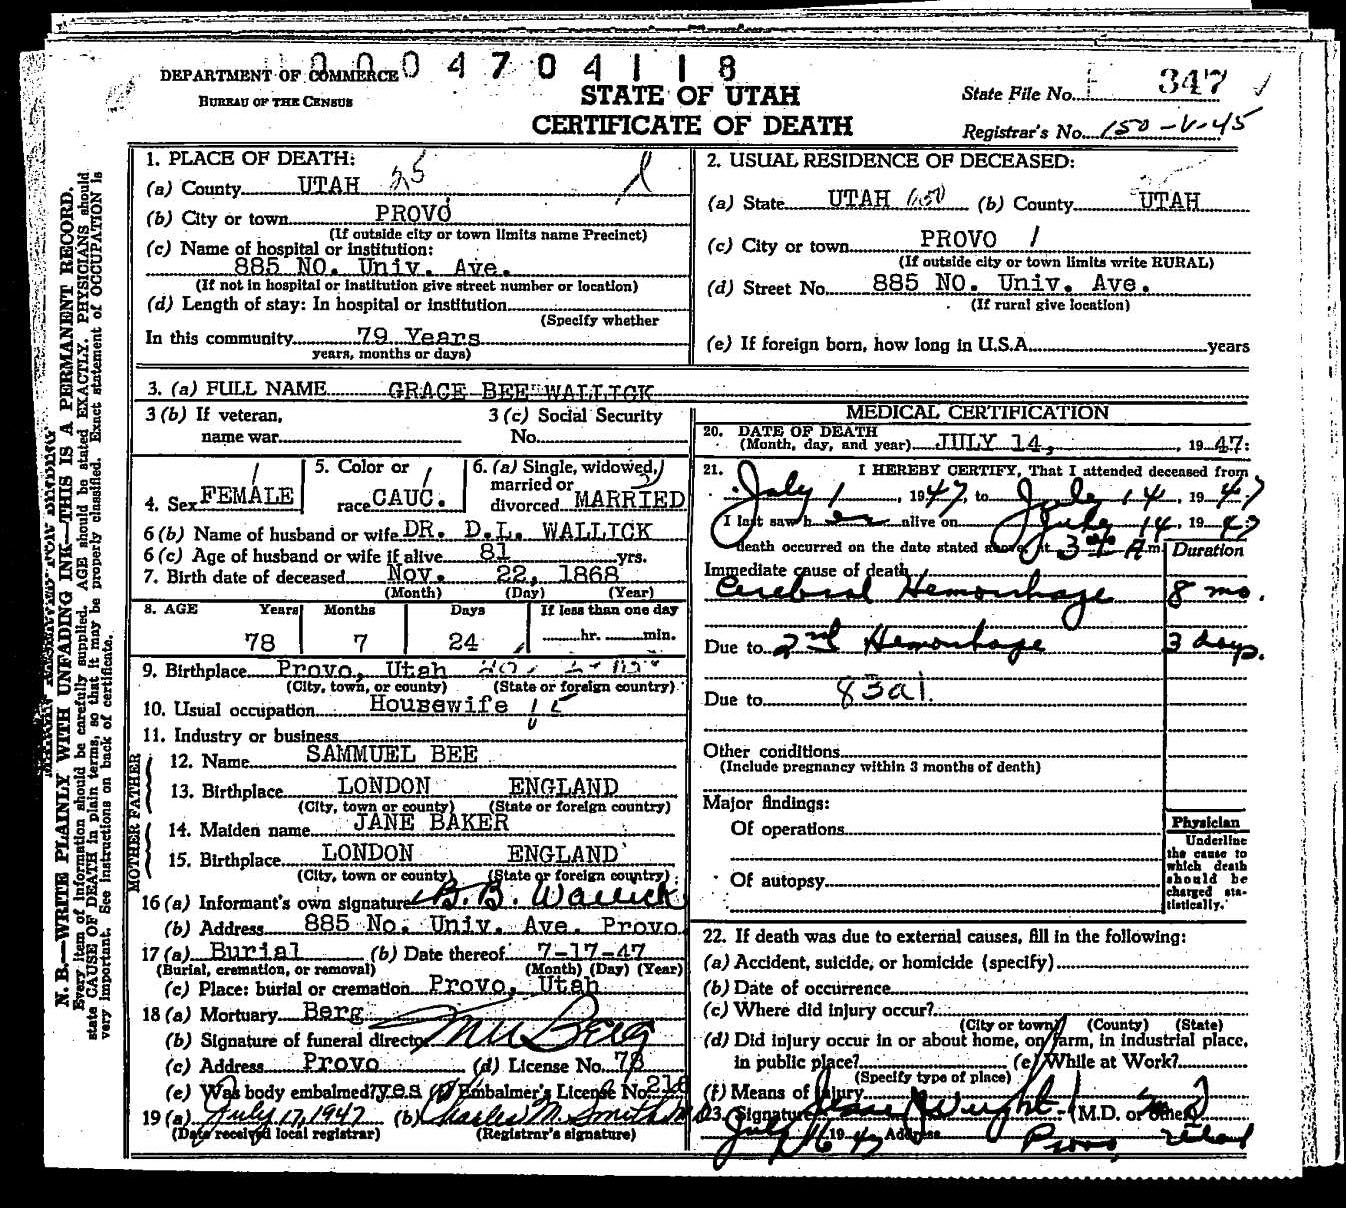 0004704118
DEPARTMENT OF COMMERCE
BUREAU OF THE CENSUS
STATE OF UTAH
CERTIFICATE OF DEATH
State File No. 347
Registrar's No. 150-V-45
N. B.—WRITE PLAINLY WITH UNFADING INK—THIS IS A PERMANENT RECORD.
Every item of information should be carefully supplied. AGE should be stated EXACTLY. PHYSICIANS should
state CAUSE OF DEATH in plain terms, so that it may be properly classified. Exact statement of OCCUPATION is
very important. See instructions on back of certificate.
1. PLACE OF DEATH:
(a) County UTAH 25
(b) City or town PROVO
(If outside city or town limits name Precinct)
(c) Name of hospital or institution:
885 NO. Univ. Ave.
(If not in hospital or institution give street number or location)
(d) Length of stay: In hospital or institution
(Specify whether
In this community 79 Years
years, months or days)
2. USUAL RESIDENCE OF DECEASED:
(a) State UTAH (b) County UTAH
(c) City or town PROVO 1
(If outside city or town limits write RURAL)
(d) Street No. 885 NO. Univ. Ave.
(If rural give location)
(e) If foreign born, how long in U.S.A. years
3. (a) FULL NAME GRACE BEE WALLICK
3 (b) If veteran,
name war
3 (c) Social Security
No.
4. Sex FEMALE
5. Color or
race CAUC.
6. (a) Single, widowed,
married or
divorced MARRIED
6 (b) Name of husband or wife DR. D.L. WALLICK
6 (c) Age of husband or wife if alive 81 yrs.
7. Birth date of deceased Nov. 22, 1868
(Month) (Day) (Year)
8. AGE Years Months Days If less than one day
78 7 24 hr. min.
9. Birthplace Provo, Utah
(City, town, or county) (State or foreign country)
10. Usual occupation Housewife
11. Industry or business
FATHER
12. Name SAMMUEL BEE
13. Birthplace LONDON ENGLAND
(City, town or county) (State or foreign country)
MOTHER
14. Maiden name JANE BAKER
15. Birthplace LONDON ENGLAND
(City, town or county) (State or foreign country)
16 (a) Informant's own signature B.B. Wallick
(b) Address 885 No. Univ. Ave. Provo
17 (a) Burial (b) Date thereof 7-17-47
(Burial, cremation, or removal) (Month) (Day) (Year)
(c) Place: burial or cremation Provo, Utah
18 (a) Mortuary Berg
(b) Signature of funeral director
(c) Address Provo (d) License No. 78
(e) Was body embalmed? yes (f) Embalmer's License No. 218
19 (a) July 17, 1947 (b) Charles M. Smith M.D.
(Date received local registrar) (Registrar's signature)
MEDICAL CERTIFICATION
20. DATE OF DEATH
(Month, day, and year) JULY 14, 1947:
21. I HEREBY CERTIFY, That I attended deceased from
July 1, 1947 to July 14, 1947
I last saw her alive on July 14, 1947
death occurred on the date stated above, at 3 A.m.
Duration
Immediate cause of death
Cerebral Hemorrhage 8 mo.
Due to 2nd Hemorrhage 3 days.
Due to 83a1.
Other conditions
(Include pregnancy within 3 months of death)
Major findings:
Of operations
Of autopsy
Physician
Underline
the cause to
which death
should be
charged sta-
tistically.
22. If death was due to external causes, fill in the following:
(a) Accident, suicide, or homicide (specify)
(b) Date of occurrence
(c) Where did injury occur?
(City or town) (County) (State)
(d) Did injury occur in or about home, on farm, in industrial place,
in public place? (e) While at Work?
(Specify type of place)
(f) Means of injury
23. Signature Wright (M.D. or other)
July 16 1947 Address Provo, Utah